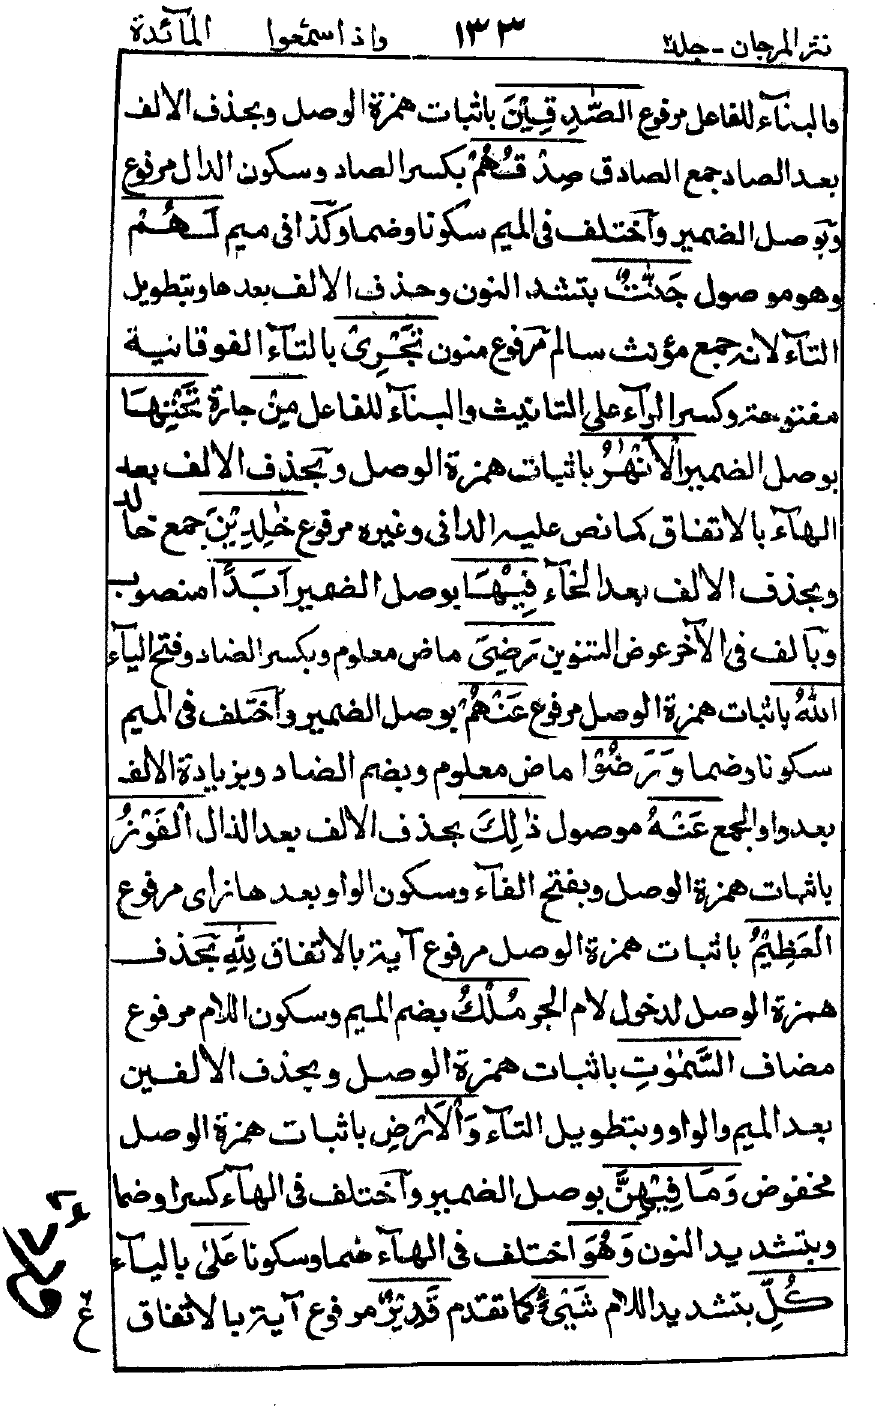 نثر المرجان - جلد٢ ١٣٣ واذا سمعوا المآئدة
والبنآء للفاعل مرفوع الصّٰدِقِيْنَ باثبات همزة الوصل وبحذف الالف
بعد الصاد جمع الصادق صِدْقُهُمْ بكسر الصاد وسكون الدال مرفوع
وبوصل الضمير وآختلف فى الميم سكونا وضما وكذا فى ميم لَهُمْ
وهو موصول جَنّٰتٌ بتشد النون وحذف الالف بعدها وبتطويل
التآء لانه جمع مؤنث سالم مرفوع منون تَجْرِىْ بالتآء الفوقانية
مفتوحة وكسر الرآء على التانيث والبنآء للفاعل مِنْ جارة تَحْتِهَا
بوصل الضمير الْاَنْهٰرُ باثبات همزة الوصل وبحذف الالف بعد
الهآء بالاتفاق كما نص عليه الدانى وغيره مرفوع خٰلِدِيْنَ جمع خالد
وبحذف الالف بعد الخآء فِيْهَا بوصل الضمير اَبَدًا منصوب
وبالف فى الآخر عوض التنوين رَضِىَ ماض معلوم وبكسر الضاد وفتح اليآء
اللّٰهُ باثبات همزة الوصل مرفوع عَنْهُمْ بوصل الضمير وآختلف فى الميم
سكونا وضما وَرَضُوْا ماض معلوم وبضم الضاد وبزيادة الالف
بعد واو الجمع عَنْهُ موصول ذٰلِكَ بحذف الالف بعد الذال الْفَوْزُ
باثبات همزة الوصل وبفتح الفآء وسكون الواو بعدها زاى مرفوع
الْعَظِيْمُ باثبات همزة الوصل مرفوع آية بالاتفاق لِلّٰهِ بحذف
همزة الوصل لدخول لام الجر مُلْكُ بضم الميم وسكون اللام مرفوع
مضاف السَّمٰوٰتِ باثبات همزة الوصل وبحذف الالفين
بعد الميم والواو وبتطويل التآء وَالْاَرْضِ باثبات همزة الوصل
مخفوض وَمَا فِيْهِنَّ بوصل الضمير وآختلف فى الهآء كسرا وضما
وبتشديد النون وَهُوَ اختلف فى الهآء ضما وسكونا عَلٰى باليآء
كُلِّ بتشديد اللام شَىْءٍ كما تقدم قَدِيْرٌ مرفوع آية بالاتفاق
ع